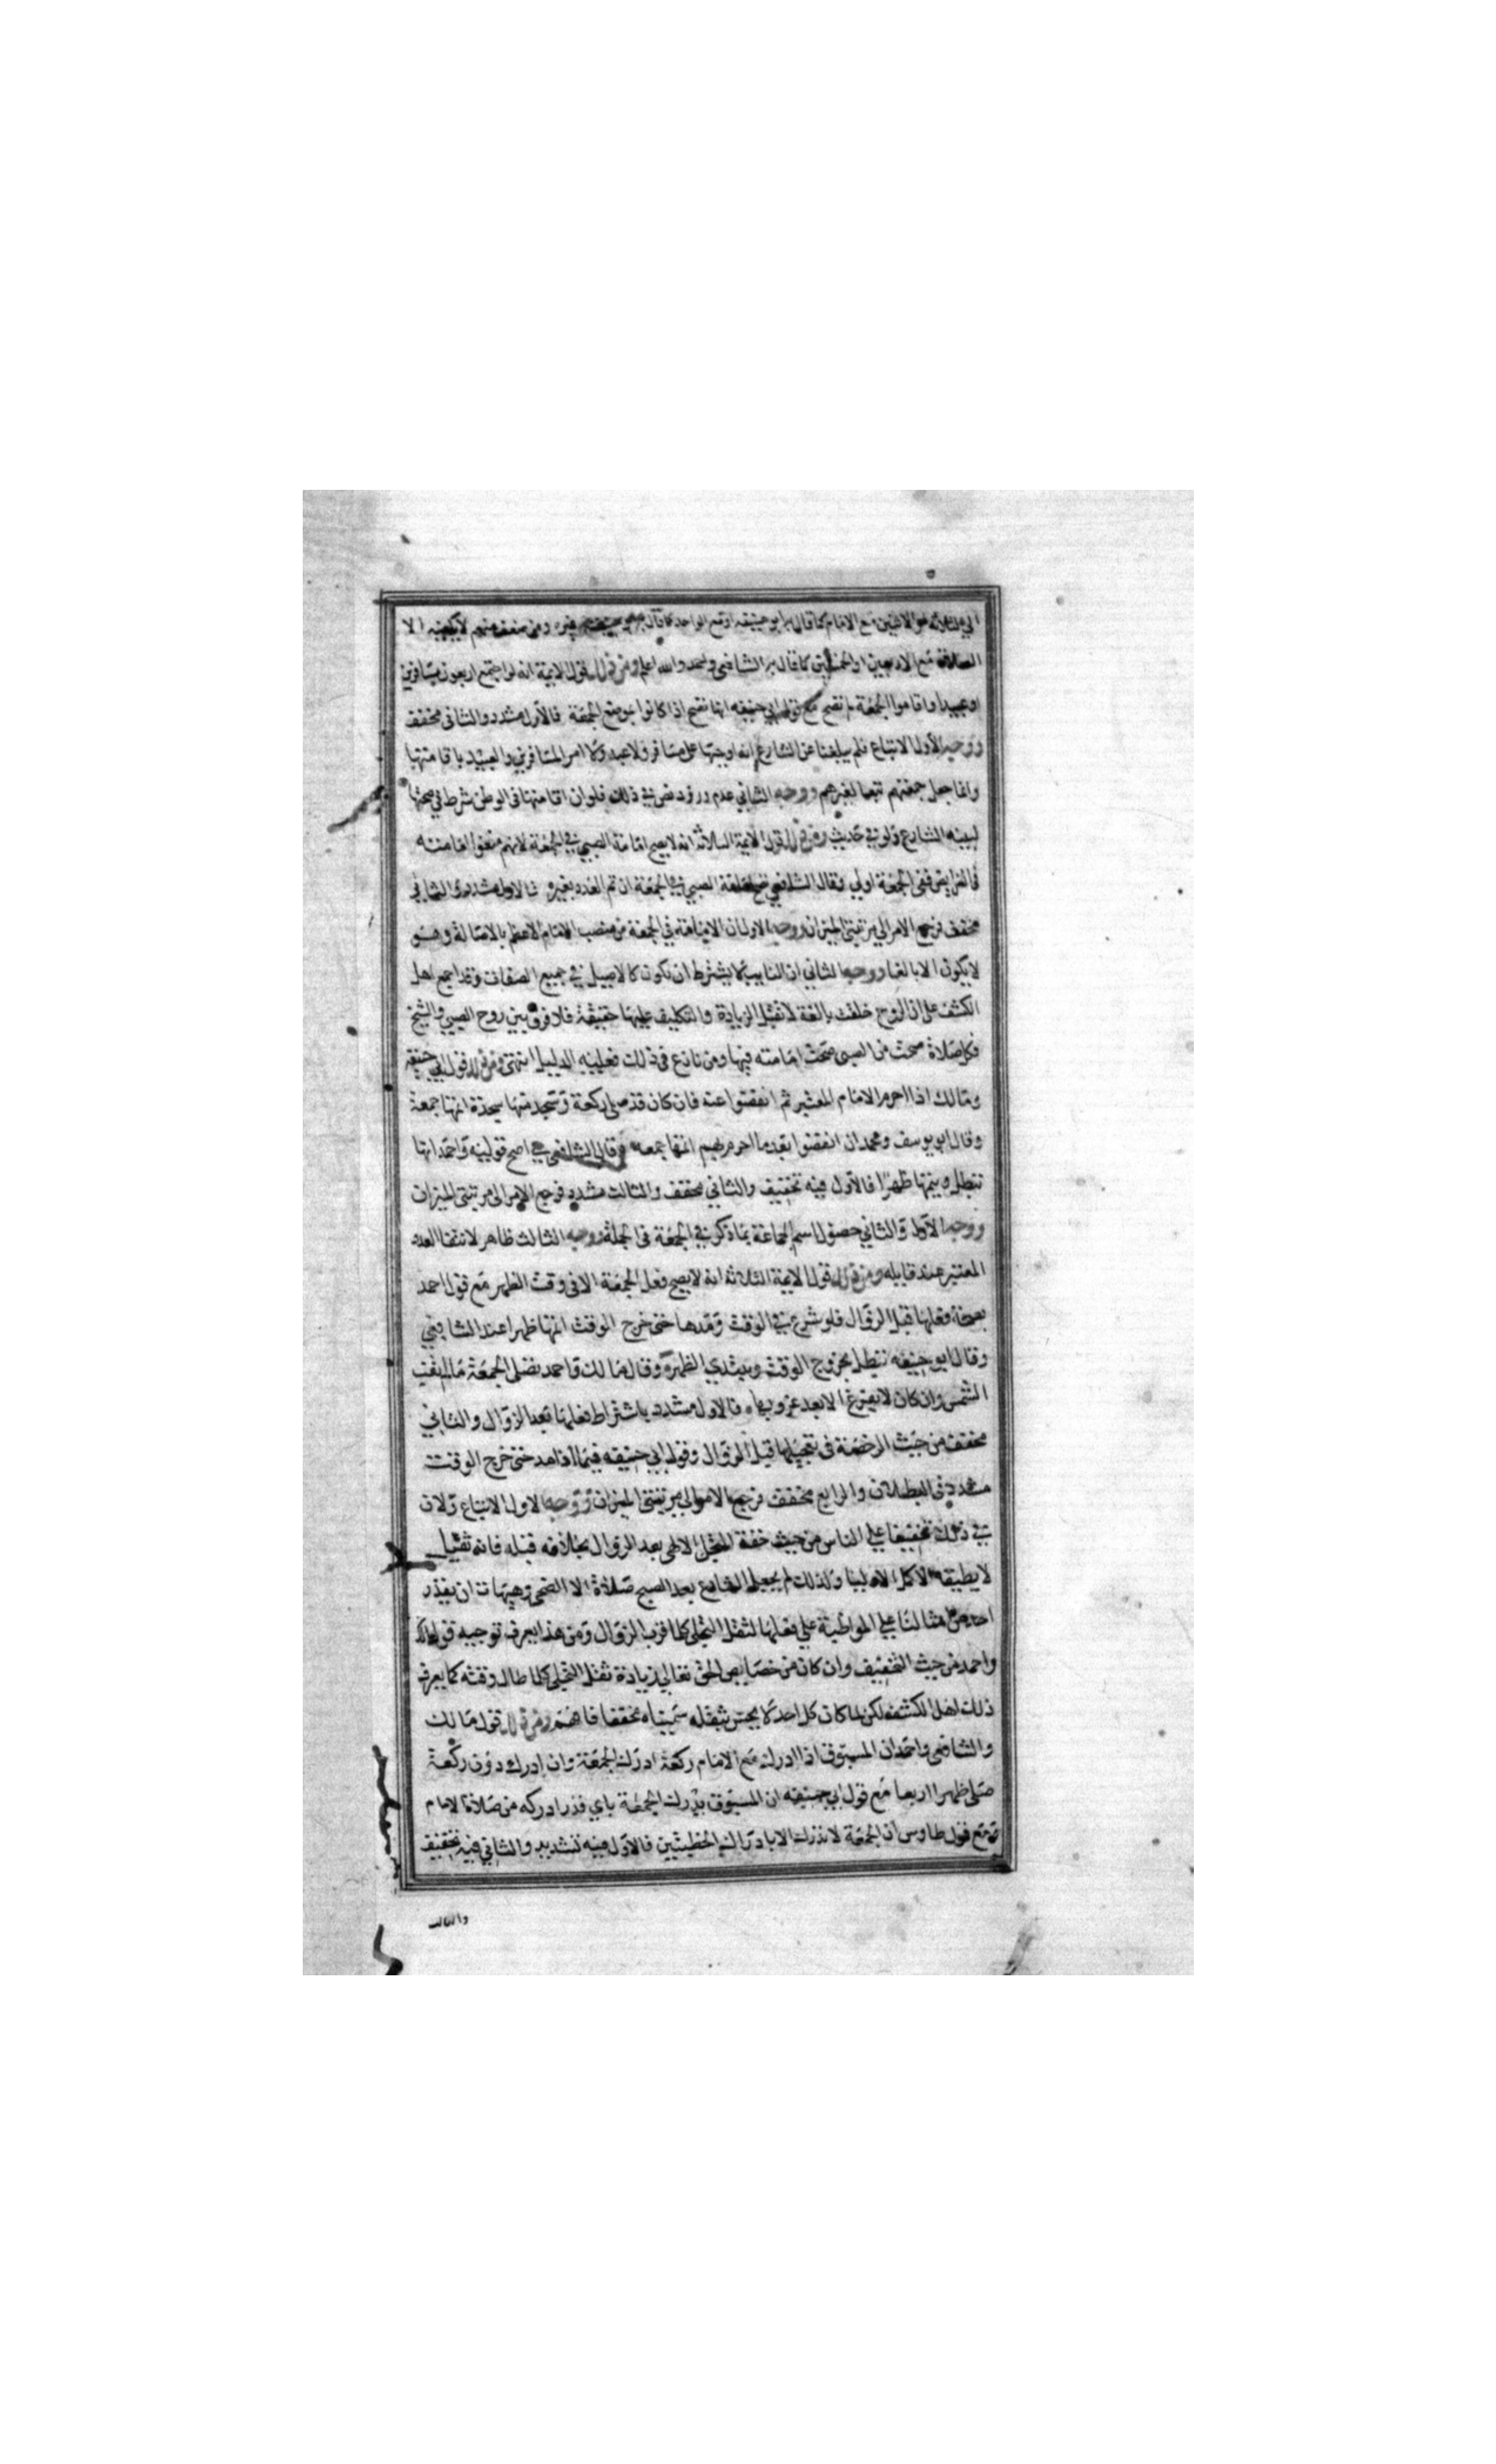 الامام كما قال به ابو حنيفه او مع الواحد كما قال به غيره ومن ضعف منهم لا يكفيه الا
الصلاة مع الاربعين او الخمسين كما قال به الشافعي واحمد والله اعلم ومن ذلك قول الايمة انه لو اجتمع اربعون مسافرين
او عبيدا واقاموا الجمعة لم تصح مع قول ابي حنيفه انها تصح اذا كانوا بموضع الجمعة فالاول مشدد والثاني مخفف
ووجه الاول الاتباع فلم يبلغنا عن الشارع انه اوجبها على مسافر ولا عبد ولا امر المسافرين والعبيد باقامتها
وانما جعل جمعتهم تبعا لغيرهم ووجه الثاني عدم ورود نص في ذلك فلو ان اقامتها في الوطن شرط في صحتها
لبينه الشارع ولو في حديث ومن ذلك قول الايمة الثلاثة انه لا يصح امامة الصبي في الجمعة لانهم منعوا امامته
في الفرايض ففي الجمعة اولي وقال الشافعي تصح امامة الصبي في الجمعة ان تم العدد بغيره فالاول مشدد والثاني
مخفف فرجع الامر الي مرتبتي الميزان ووجه الاول ان الامامة في الجمعة من منصب الامام الاعظم بالاصالة وهو
لا يكون الا بالغا ووجه الثاني ان النايب لا يشترط ان يكون كالاصيل في جميع الصفات وقد اجمع اهل
الكشف على ان الروح خلقت بالغة لا تقبل الزيادة والتكليف عليها حقيقة فلا فرق بين روح الصبي والشيخ
فكل صلاة صحت من الصبي صحت امامته فيها ومن نازع في ذلك فعليه الدليل انتهى ومن ذلك قول ابي حنيفه
ومالك اذا احرم الامام بالعدد المعتبر ثم انفضوا عنه فان كان قد صلى ركعة وسجد منها سجدة اتمها جمعة
وقال ابو يوسف ومحمد ان انفضوا بعد ما احرم بهم اتمها جمعة وقال الشافعي في اصح قوليه واحمد انها
تبطل ويتمها ظهرا فالاول فيه تخفيف والثاني مخفف والثالث مشدد فرجع الامر الى مرتبتي الميزان
ووجه الاول والثاني حصول اسم الجماعة بما ذكر في الجمعة في الجملة ووجه الثالث ظاهر لانتفا العدد
المعتبر عند قايله ومن ذلك قول الايمة الثلاثة انه لا يصح فعل الجمعة الا في وقت الظهر مع قول احمد
بصحة فعلها قبل الزوال فلو شرع في الوقت ومدها حتى خرج الوقت اتمها ظهرا عند الشافعي
وقال ابو حنيفه تبطل بخروج الوقت ويبتدي الظهر وقال مالك واحمد تصلى الجمعة ما لم تغب
الشمس وان كان لا يفرغ الا بعد غروبها فالاول مشدد باشتراط فعلها بعد الزوال والثاني
مخفف من حيث الرخصة في تعجيلها قبل الزوال وقول ابي حنيفه فيما اذا مد حتى خرج الوقت
مشدد في البطلان والرابع مخفف فرجع الامر الي مرتبتي الميزان ووجه الاول الاتباع ولان
في ذلك تخفيفا علي الناس من حيث خفة التجلي الالهي بعد الزوال بخلافه قبله فانه ثقيل
لا يطيقه الا كمل الاوليا ولذلك لم يجعل الشارع بعد الصبح صلاة الا الضحى وهيهات ان يقدر
احد من امثالنا علي المواظبة علي فعلها لثقل التجلي كلما قرب الزوال ومن هذا يعرف توجيه قول مالك
واحمد من حيث التخفيف وان كان من خصايص الحق تعالي زيادة ثقل التجلي كلما طال وقته كما يعرف
ذلك اهل الكشف لكن لما كان كل احد لا يحس بثقله سميناه مخففا فافهم ومن ذلك قول مالك
والشافعي واحمد ان المسبوق اذا ادرك مع الامام ركعة ادرك الجمعة وان ادرك دون ركعة
صلى ظهرا اربعا مع قول ابي حنيفه ان المسبوق يدرك الجمعة باي قدر ادركه من صلاة الامام
ومع قول طاوس ان الجمعة لا تدرك الا بادراك الخطبتين فالاول فيه تشديد والثاني فيه تخفيف
والثالث